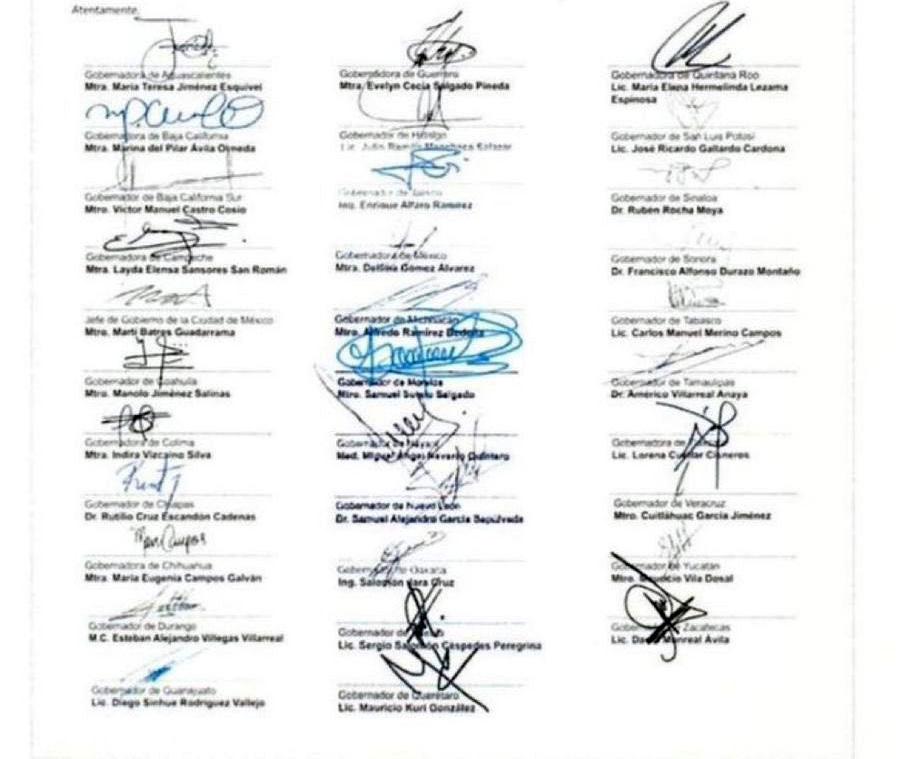 Atentamente,
Gobernadora de Aguascalientes
Mtra. María Teresa Jiménez Esquivel
Gobernadora de Baja California
Mtra. Marina del Pilar Ávila Olmeda
Gobernador de Baja California Sur
Mtro. Víctor Manuel Castro Cosío
Gobernadora de Campeche
Mtra. Layda Elensa Sansores San Román
Jefe de Gobierno de la Ciudad de México
Mtro. Martí Batres Guadarrama
Gobernador de Coahuila
Mtro. Manolo Jiménez Salinas
Gobernadora de Colima
Mtra. Indira Vizcaíno Silva
Gobernador de Chiapas
Dr. Rutilio Cruz Escandón Cadenas
Gobernadora de Chihuahua
Mtra. María Eugenia Campos Galván
Gobernador de Durango
M.C. Esteban Alejandro Villegas Villarreal
Gobernador de Guanajuato
Lic. Diego Sinhue Rodríguez Vallejo
Gobernadora de Guerrero
Mtra. Evelyn Cecia Salgado Pineda
Gobernador de Hidalgo
Lic. Julio Ramón Menchaca Salazar
Gobernador de Jalisco
Ing. Enrique Alfaro Ramírez
Gobernadora de México
Mtra. Delfina Gómez Álvarez
Gobernador de Michoacán
Mtro. Alfredo Ramírez Bedolla
Gobernador de Morelos
Mtro. Samuel Sotelo Salgado
Gobernador de Nayarit
Med. Miguel Ángel Navarro Quintero
Gobernador de Nuevo León
Dr. Samuel Alejandro García Sepúlveda
Gobernador de Oaxaca
Ing. Salomón Jara Cruz
Gobernador de
Lic. Sergio Salomón Céspedes Peregrina
Gobernador de Querétaro
Lic. Mauricio Kuri González
Gobernadora de Quintana Roo
Lic. María Elena Hermelinda Lezama
Espinosa
Gobernador de San Luis Potosí
Lic. José Ricardo Gallardo Cardona
Gobernador de Sinaloa
Dr. Rubén Rocha Moya
Gobernador de Sonora
Dr. Francisco Alfonso Durazo Montaño
Gobernador de Tabasco
Lic. Carlos Manuel Merino Campos
Gobernador de Tamaulipas
Dr. Américo Villarreal Anaya
Gobernadora de
Lic. Lorena Cuéllar Cisneros
Gobernador de Veracruz
Mtro. Cuitláhuac García Jiménez
Gobernador de Yucatán
Mtro. Mauricio Vila Dosal
Gobernador de Zacatecas
Lic. David Monreal Ávila